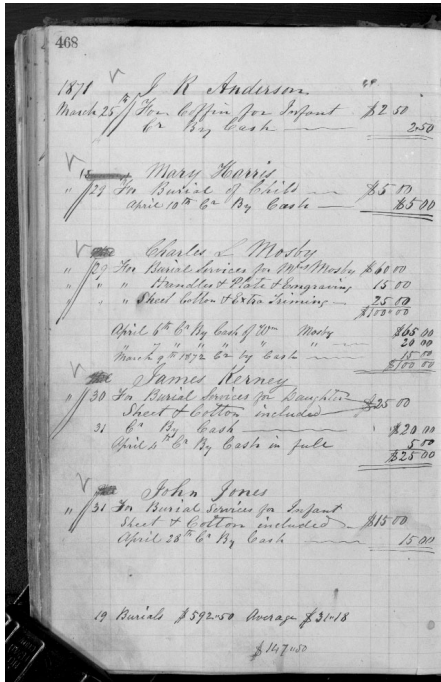 468
1871 J R Anderson
March 25th For Coffin for Infant $2.50
Cr By Cash 2.50
Mary Harris
" 29 For Burial of Child $5.00
April 10th Cr By Cash $5.00
Charles L Mosby
" 29 For Burial Services for Mrs Mosby $60.00
" " Handles & Plate & Engraving 15.00
" " Sheet Cotton & Extra Triming 25.00
$100.00
April 6th Cr By Cash of Wm Mosby $65.00
" " " " " " " 20.00
March 9th 1872 Cr by Cash 15.00
$100.00
James Kerney
" 30 For Burial Services for Daughter
Sheet & Cotton included $25.00
31 Cr By Cash $20.00
April 4th Cr By Cash in full 5.00
$25.00
John Jones
" 31 For Burial Services for Infant
Sheet & Cotton included $15.00
April 28th Cr By Cash 15.00
19 Burials $592.50 Average $31.18
$147.50